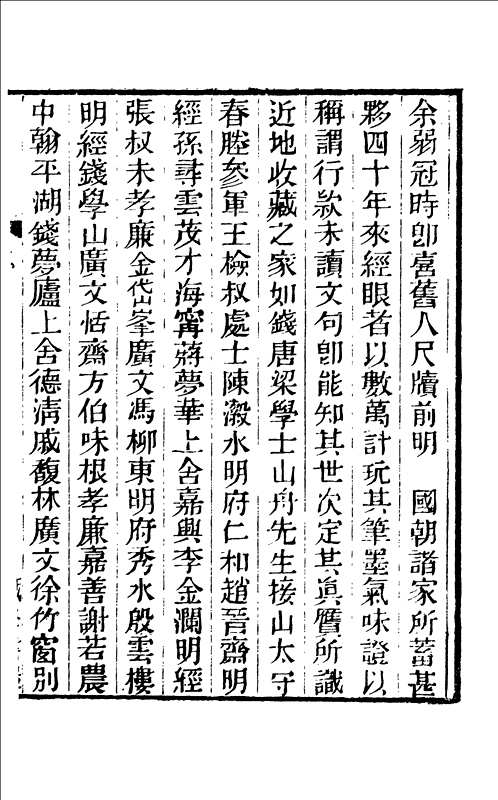 余弱冠時卽喜舊人尺牘前明　國朝諸家所蓄甚
夥四十年來經眼者以數萬計玩其筆墨氣味證以
稱謂行款未讀文句卽能知其世次定其眞贋所識
近地收藏之家如錢唐梁學士山舟先生接山太守
春塍參軍王檢叔處士陳瀫水明府仁和趙晉齋明
經孫尋雲茂才海甯蔣夢華上舍嘉興李金瀾明經
張叔未孝廉金岱峯廣文馮柳東明府秀水殷雲樓
明經錢學山廣文恬齋方伯味根孝廉嘉善謝若農
中翰平湖錢夢廬上舍德淸戚馥林廣文徐竹窗別